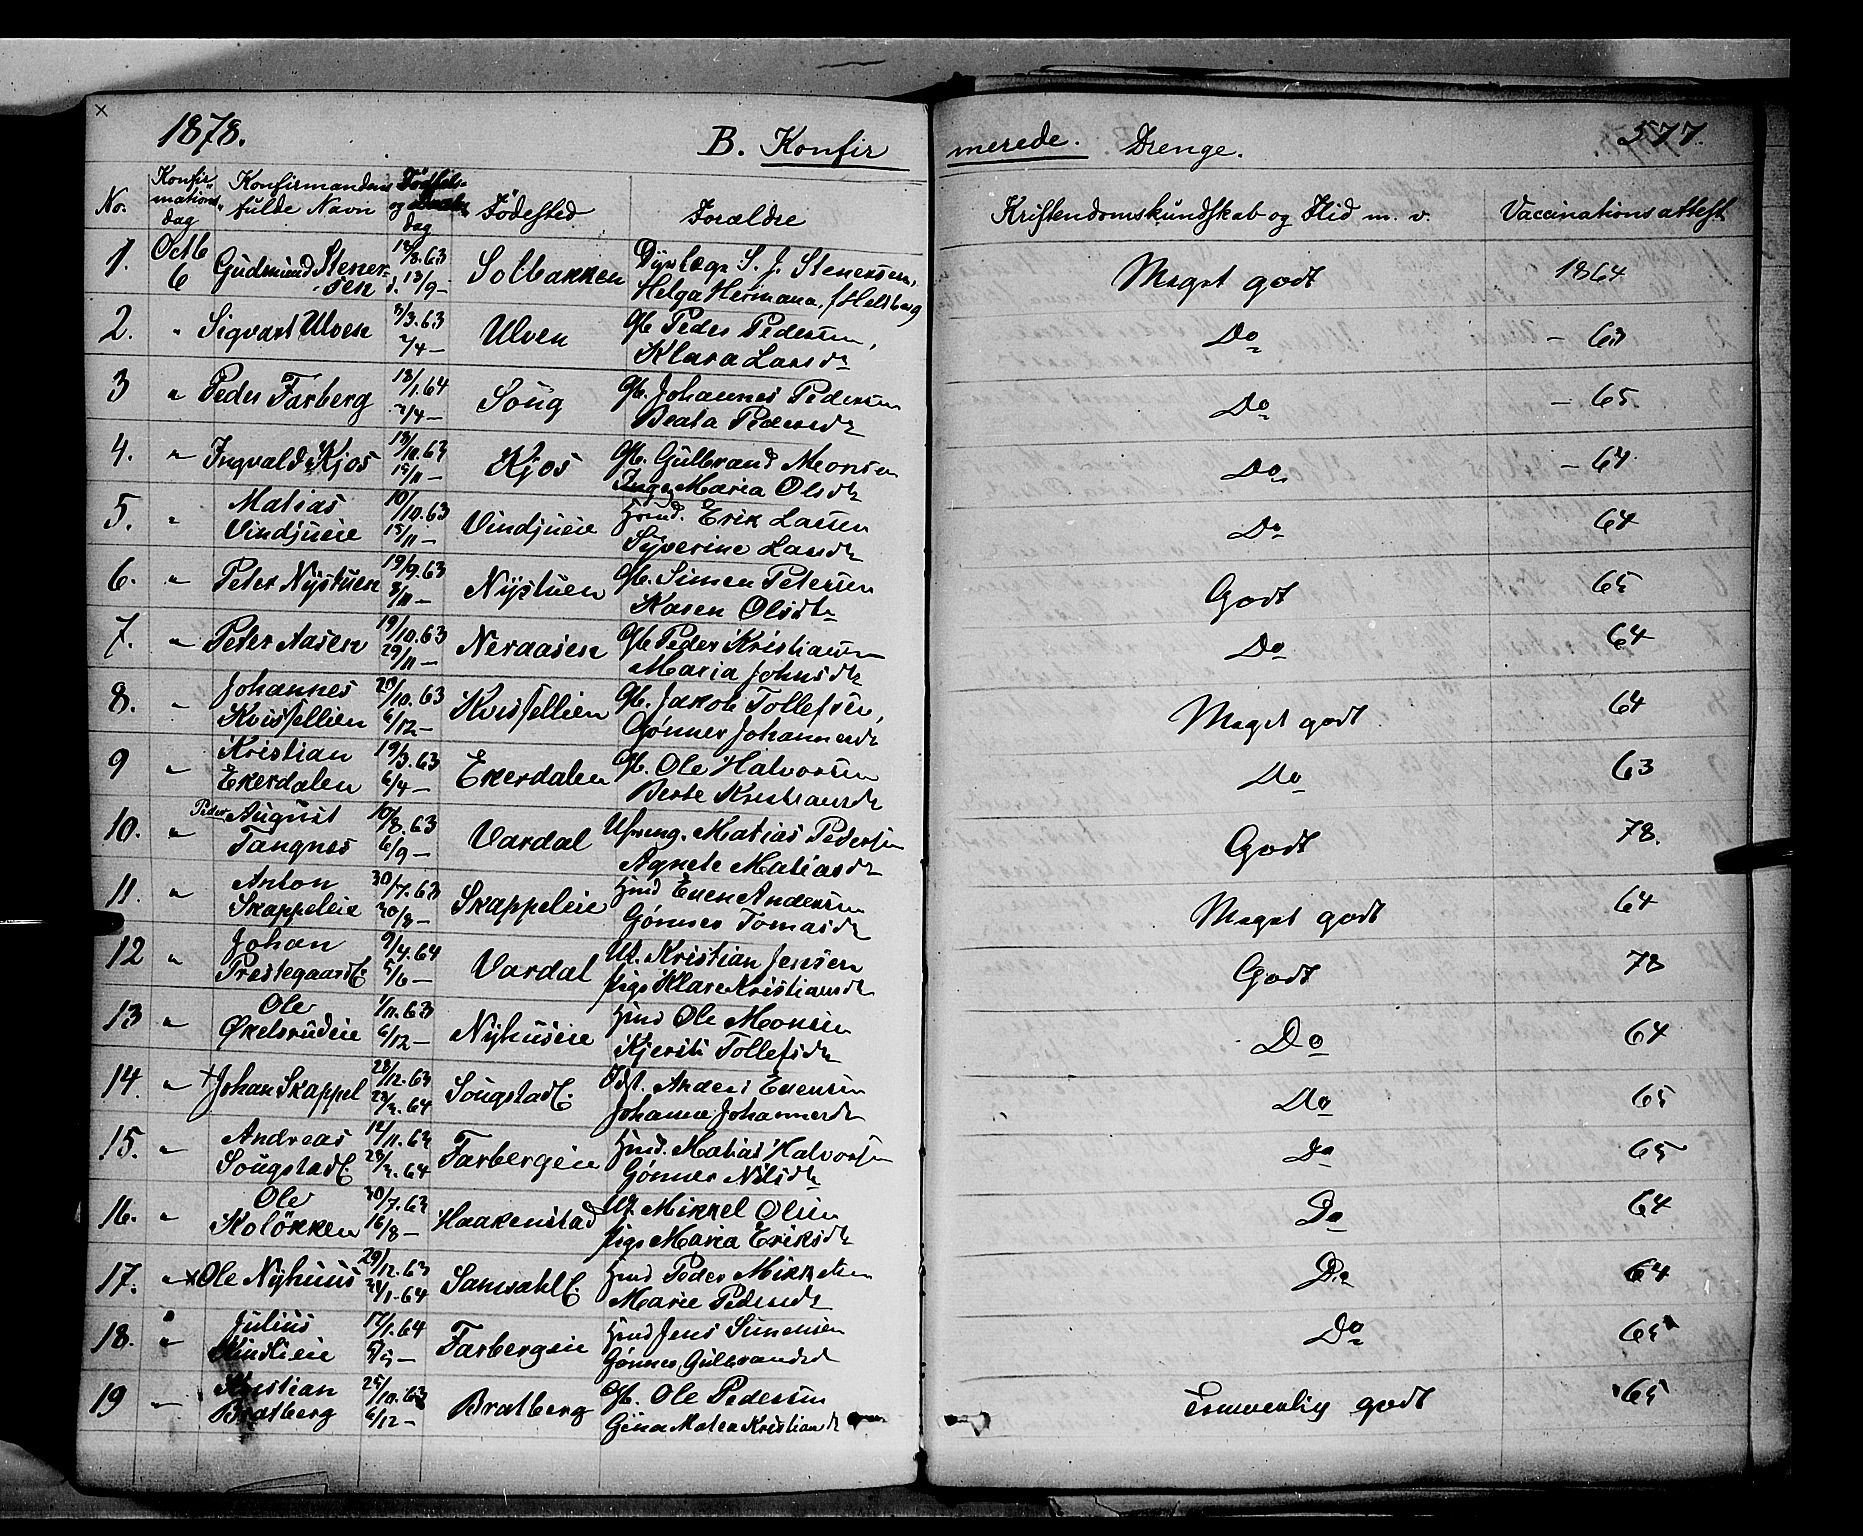 1878. B. Konfir merede. Drenge. 577.
No. Konfirmations dag Konfirmandens fulde Navn Födsels- og dag Födested Forældre Kristendomskundskab og Flid m. v. Vaccinationsattest
1. Octb 6 Gudmund Stenersen 18/8.63 d. 13/9 — Solbakken Dyrlæge S. J. Stenersen, Helga Hermana, f Helsberg Meget godt 1864
2. " Sigvart Ulven 3/3.63 7/4 — Ulven Gb. Peder Pedersen, Klara Larsdt Do — 63
3 " Peder Farberg 13/1.64 7/4 — Soug Gb. Johannes Pedersen Beata Pedersdt Do — 65
4. " Ingvald Kjos 13/10.63 15/11 — Kjos Gb. Gulbrand Monsen Inger Maria Olsdt Do — 64
5. " Matias Vindjueie 10/10.63 15/11 — Vindjueie Hmd. Erik Larsen Syverine Larsdt Do 64
6. " Peter Nystuen 19/9.63 8/11 — Nystuen Gb. Simen Petersen Karen Olsdt Godt 65
7. " Peter Aasen 19/10.63 29/11 — Neraasen Gb. Peder Kristiansen Maria Johnsdt Do 64
8. " Johannes Kvisllien 20/10.63 6/12 — Kvisllien Gb. Jakob Tollefsen, Gønner Johannesdt Meget godt 64
9 " Kristian Ekerdalen 19/3.63 6/4 — Ekerdalen Gb. Ole Halvorsen Berte Kristiansdt Do 63
10. " Peder August Tangnes 10/8.63 6/9 — Vardal Matias Pedersen Agnete Matiasdt Godt 78.
11. " Anton Skappeleie 30/7.63 30/8 — Skappeleie Hmd Even Andersen Gönner Tomasdt Meget godt 64
12 " Johan Prestegaardse. 9/4.64 5/6 — Vardal Uk. Kristian Jensen pige Klare Kristiansdt Godt 78
13 " Ole Økelsrudeie 1/11.63 6/12 — Nyhuseie Hmd Ole Monsen Kjersti Tollefsdt Do 64
14. " + Johan Skappel 28/12.63 28/3.64 Sougstade. Anders Evensen Johanne Johannesdt Do 65
15. " Andreas Sougstade. 12/11.63 28/3.64 Farbergeie Hmd. Matias Halvorsen Gönner Nilsdt Do 65
16. " Ole Kolökken 30/7.63 16/8 — Haakenstad Uk. Mikkel Olsen pige Maria Eriksdt Do 64
17. " x Ole Nyhuus 29/12.63 24/1.64 Samsahle. Hmd Peder Mikkelsen Marie Pedersdt Do 64
18. " Julius Kindlieie 17/1.64 5/5 — Farbergeie Hmd Jens Simensen Gönner Gulbrandsd Do 65
19 " Kristian Bratberg 25/10.63 6/12 — Bratberg Gb. Ole Pedersen Gina Matea Kristiansdt Temmelig godt 65